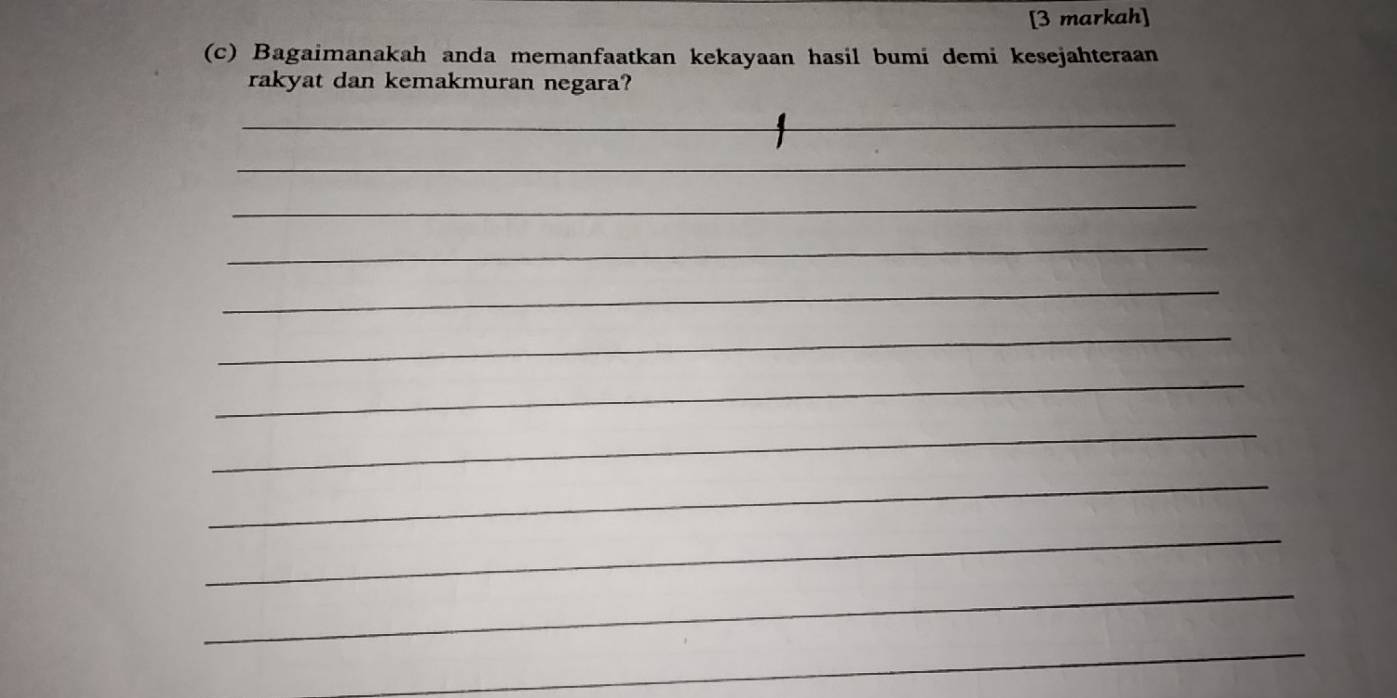 [3 markah]
(c) Bagaimanakah anda memanfaatkan kekayaan hasil bumi demi kesejahteraan
rakyat dan kemakmuran negara?